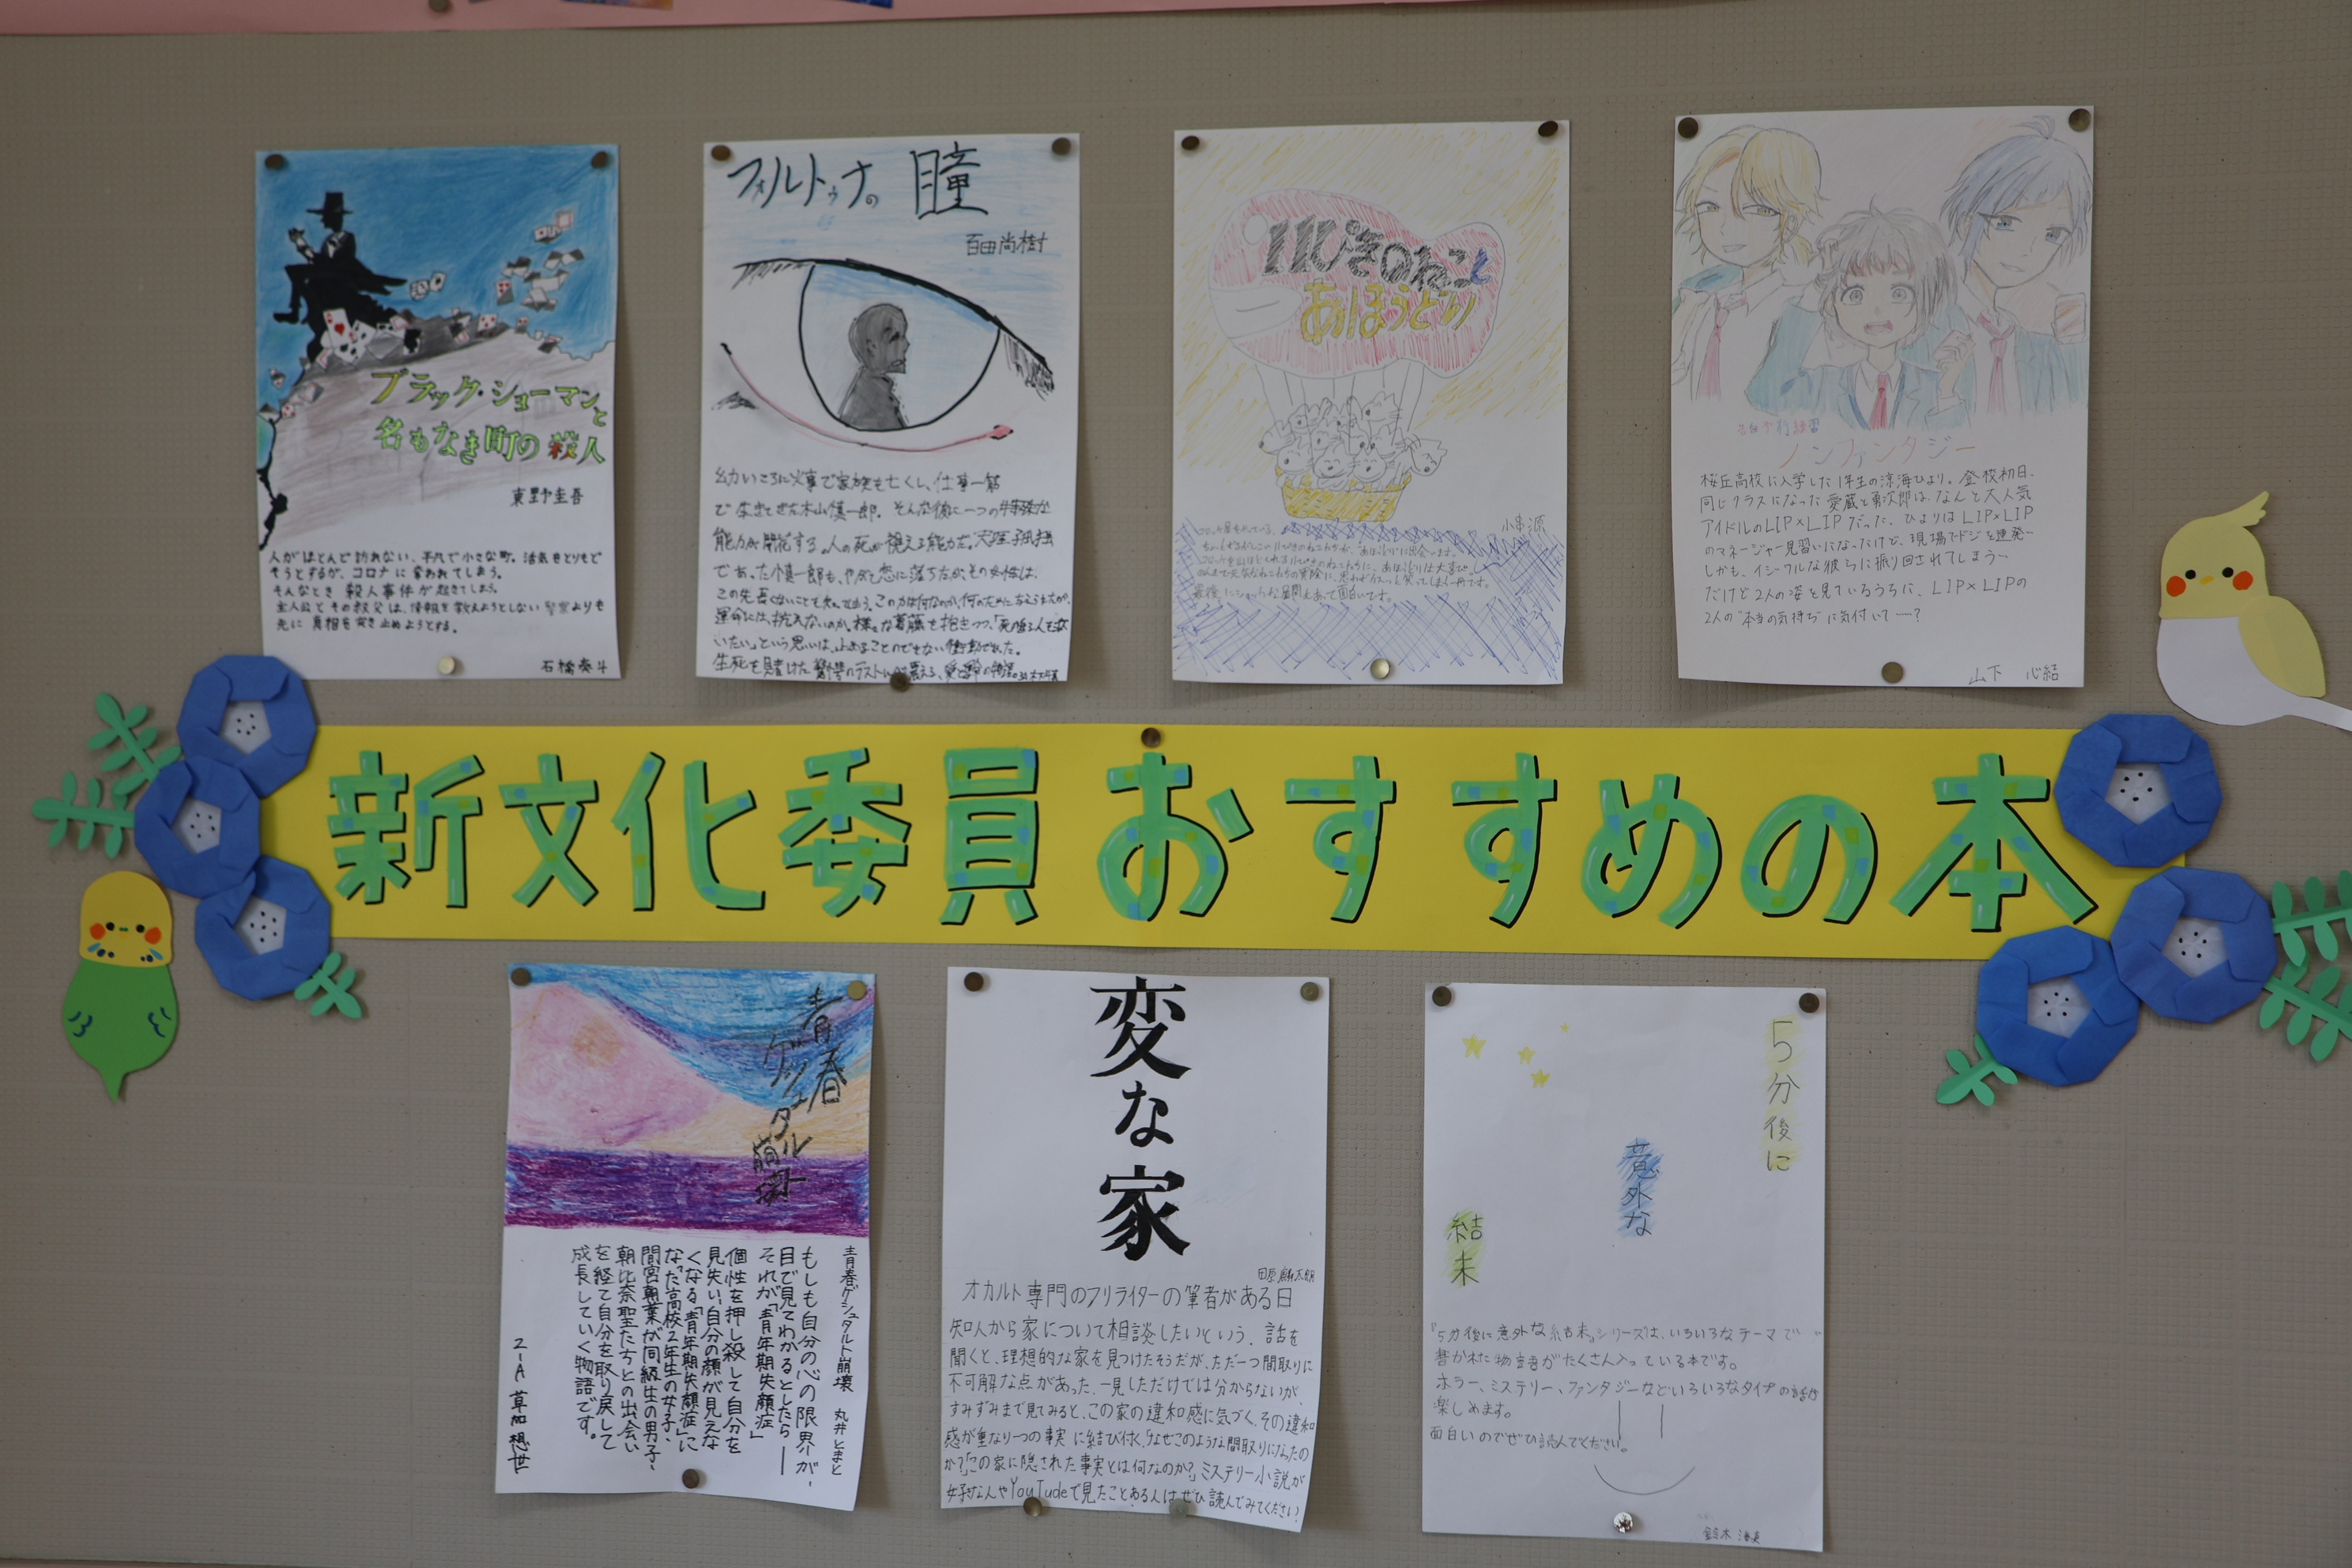 ブラック・ショーマンと
名もなき町の殺人
東野圭吾
人がほとんど訪れない、平凡で小さな町。活気をとりもど
そうとするが、コロナに奪われてしまう。
そんなとき 殺人事件が起きてしまう。
主人公とその叔父は、情報を教えようとしない警察よりも
先に真相を突き止めようとする。
フォルトゥナの瞳
百田尚樹
幼いころに火事で家族を亡くし、仕事一筋
で生きてきた木山慎一郎。そんな彼に一つの特殊な
能力が開花する。人の死が視える能力だ。天涯孤独
であった慎一郎も、やがて恋に落ちたが、その女性は、
運命には、抗えないのか。様々な葛藤を抱きつつ、「死
いたい」という思いは、止めることのできない衝動だった。
11ぴきのねこと
あほうどり
小串 源
最後に
面白いです。
告白予行練習
ノンファンタジー
桜丘高校に入学した1年生の涼海ひより。登校初日、
同じクラスになった愛蔵と勇次郎は、なんと大人気
アイドルのLIP×LIPだった。ひよりはLIP×LIP
のマネージャー見習いになったけど、現場でドジを連発…
しかも、イジワルな彼らに振り回されてしまう…
だけど2人の姿を見ているうちに、LIP×LIPの
2人の"本当の気持ち"に気付いて――?
山下 心結
新文化委員おすすめの本
青春
ゲシュタルト
崩壊
青春ゲシュタルト崩壊 丸井とまと
もしも自分の心の限界が、
目で見てわかるとしたら――
それが「青年期失顔症」
個性を押し殺して自分を
見失い、自分の顔が見えな
くなる「青年期失顔症」に
なった高校2年生の女子、
間宮朝葉が同級生の男子、
朝比奈聖たちとの出会い
を経て自分を取り戻して
成長していく物語です。
2-A 草加 想世
変な家
オカルト専門のフリライターの筆者がある日
知人から家について相談したいという。話を
聞くと、理想的な家を見つけたそうだが、ただ一つ間取りに
不可解な点があった。一見しただけでは分からないが、
すみずみまで見てみると、この家の違和感に気づく。その違和
感が重なり一つの事実に結び付く。「なぜこのような間取りになったの
か?」「この家に隠された事実とは何なのか?」ミステリー小説が
好きな人やYouTubeで見たことある人はぜひ読んでみてください。
5分後に
意外な
結末
『5分後に意外な結末』シリーズは、いろいろなテーマで
書かれた物語がたくさん入っている本です。
ホラー、ミステリー、ファンタジーなどいろいろなタイプの話が
楽しめます。
面白いのでぜひ読んでください。